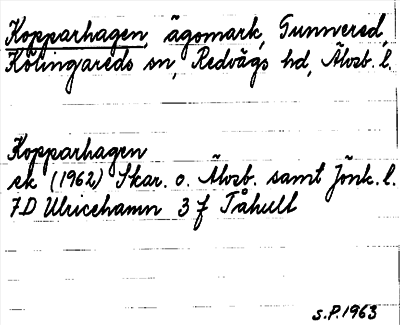 Kopparhagen, ägomark, Gunnered,
Kölingareds sn, Redvägs hd, Älvsb. l.
Kopparhagen
ek (1962) Skar. o. Älvsb. samt Jönk. l.
7D Ulricehamn 3 f Tåhult
S.P. 1963